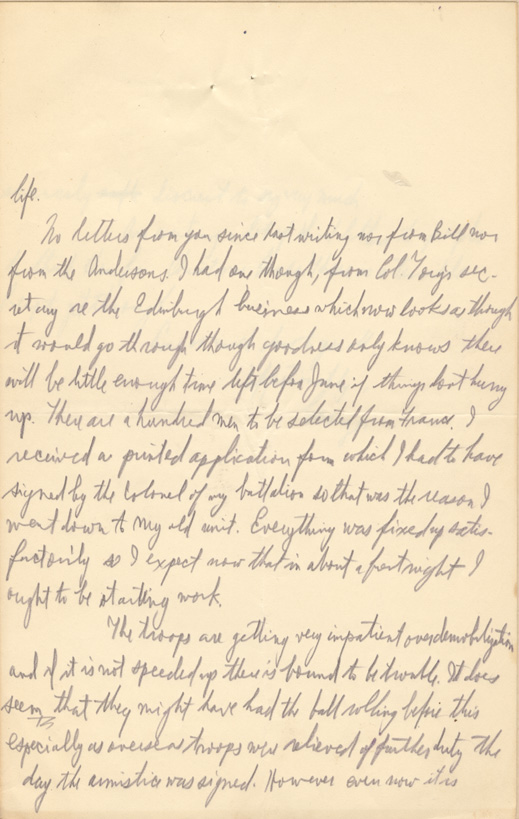 life.
No letters from you since last writing nor from Bill nor
from the Andersons. I had one though, from Col. Tory's sec-
retary re the Edinburgh business which now looks as though
it would go through though goodness only knows there
will be little enough time left before June if things don't hurry
up. There are a hundred men to be selected from France. I
received a printed application form which I had to have
signed by the Colonel of my battalion so that was the reason I
went down to my old unit. Everything was fixed up satis-
factorily so I expect now that in about a fortnight I
ought to be starting work.
The troops are getting very impatient over demobilization
and if it is not speeded up there is bound to be trouble. It does
seem that they might have had the ball rolling before this
especially as overseas troops were relieved of further duty the
day the armistice was signed. However even now it is